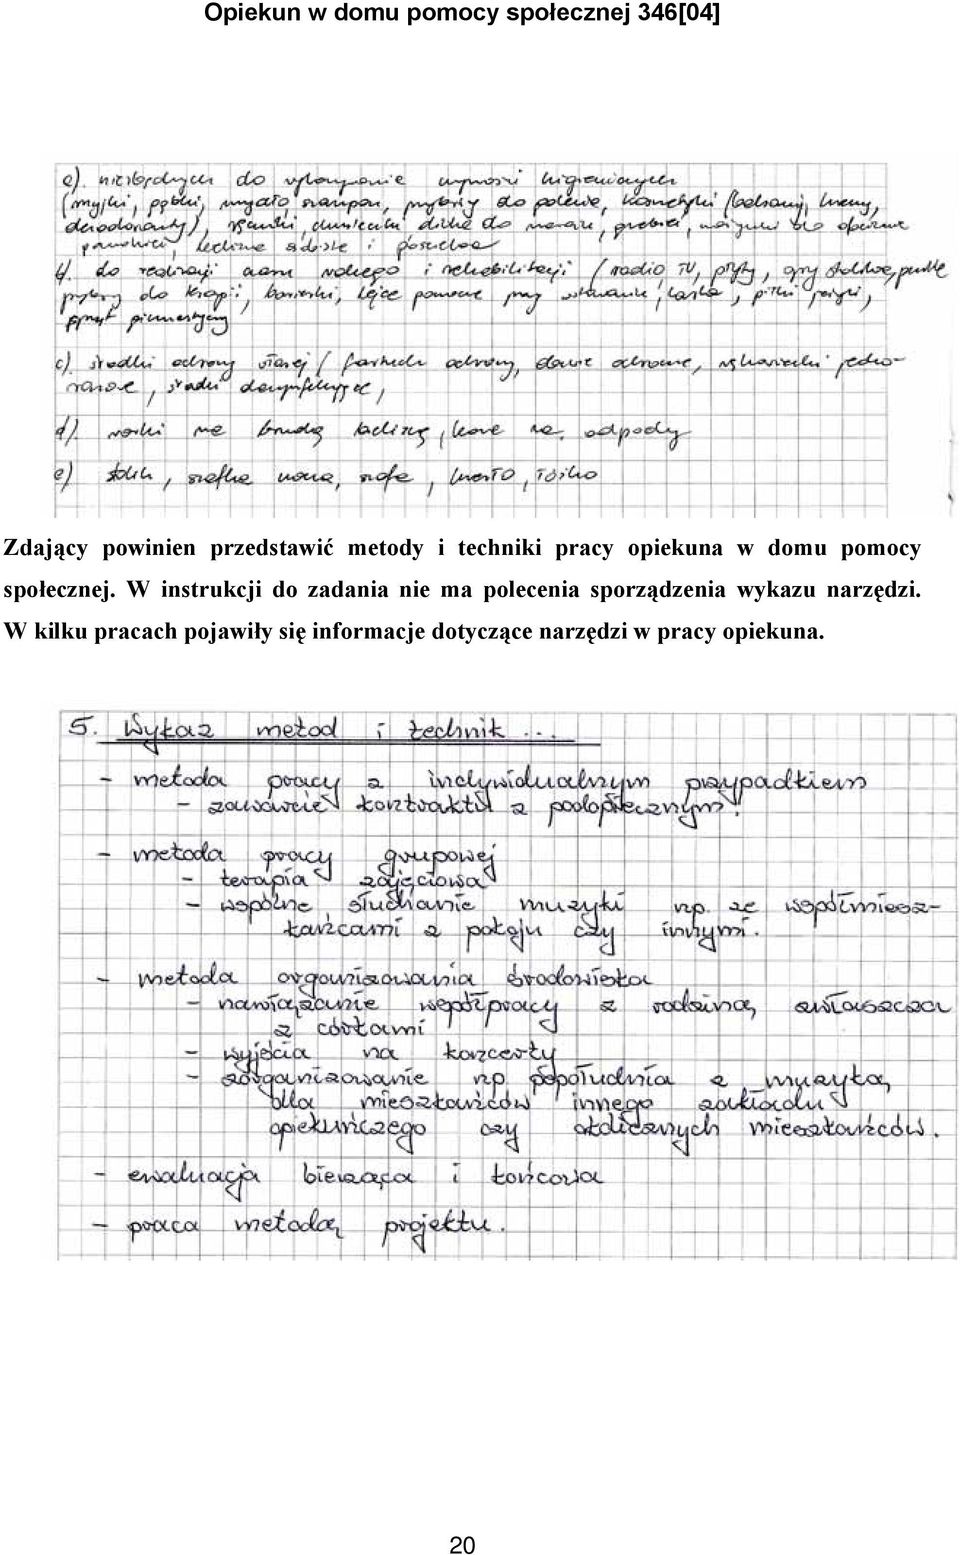 Opiekun w domu pomocy społecznej 346[04]
niezbędnych do wykonywania czynności higienicznych
(myjki, gąbki, mydło, szampon, przybory do golenia, kosmetyki (balsamy, kremy,
dezodoranty), ręczniki, chusteczki, do, grzebień, nożyczki do
i pościelowa
do realizacji czasu wolnego i rehabilitacji (radio, TV, płyty, gry stolikowe,
przybory do kąpieli, pomocne przy wstawaniu, laska, piłki,
sprzęt
c). środki ochrony (fartuch ochronny, ochronne, rękawiczki jedno-
razowe, środki dezynfekujące,
d). worki na brudną bieliznę, kosze na odpady
e) stolik, szafka nocna, szafa, krzesło, łóżko
Zdający powinien przedstawić metody i techniki pracy opiekuna w domu pomocy
społecznej. W instrukcji do zadania nie ma polecenia sporządzenia wykazu narzędzi.
W kilku pracach pojawiły się informacje dotyczące narzędzi w pracy opiekuna.
5. Wykaz metod i technik ...
- metoda pracy z indywidualnym przypadkiem
- zawarcie kontraktu z podopiecznym.
- metoda pracy grupowej
- terapia zajęciowa
- wspólne słuchanie muzyki np. ze współmiesz-
kańcami z pokoju czy innymi.
- metoda organizowania środowiska
- nawiązanie współpracy z rodziną, zwłaszcza
z córkami
- wyjścia na koncerty
- zorganizowanie np popołudnia z muzyką,
dla mieszkańców innego zakładu
opiekuńczego czy okolicznych mieszkańców.
- ewaluacja bieżąca i końcowa
- praca metodą projektu.
20